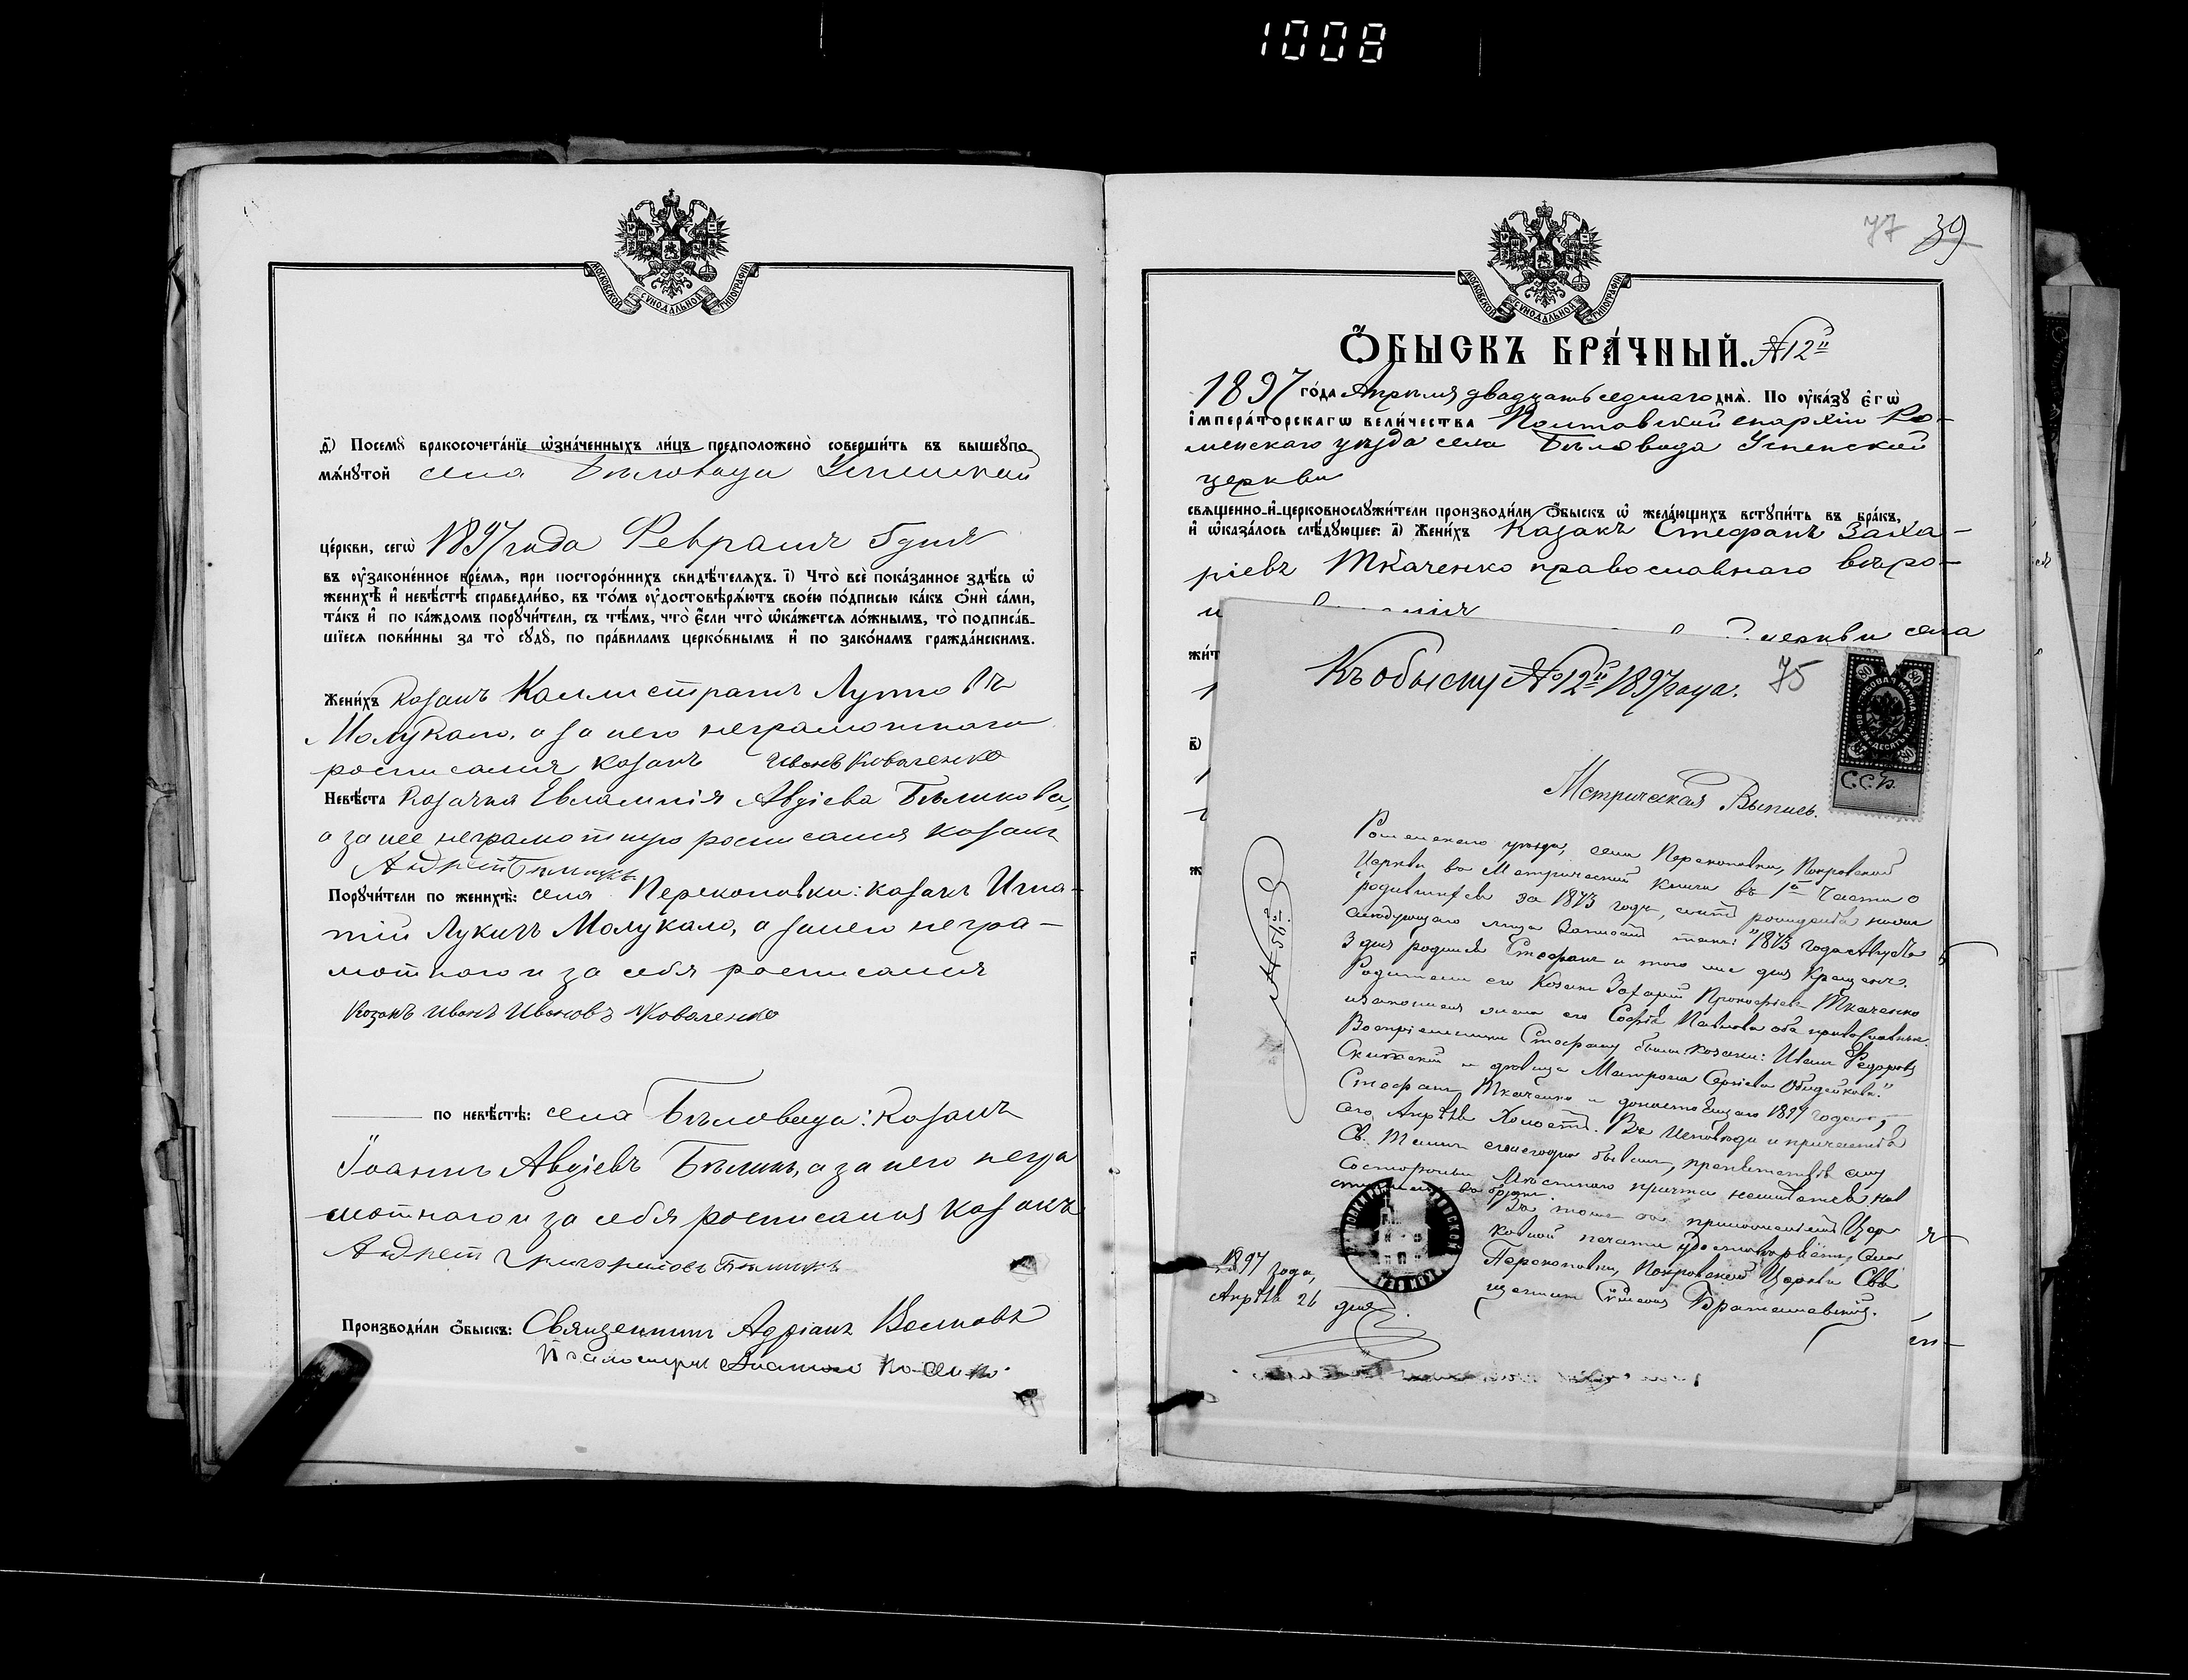 1008
МОСКОВСКОЙ СѴНОДАЛЬНОЙ ТИПОГРАФІИ
ѳ҃) Посемꙋ бракосочетанїе ѡзначенныхъ лицъ предположено совершить въ вышеупо-
мѧнꙋтой села Бѣловода Успенской
церкви, сегѡ 1897 года Февраля 5 дня
въ ᲂу҆законенное время, при постороннихъ свидѣтеляхъ. і҃) Что все показанное здѣсь ѡ
женихѣ и невѣстѣ справедливо, въ томъ ᲂу҆достовѣряютъ своею подписью какъ ѻни сами,
такъ и по каждомъ порꙋчители, съ тѣмъ, что если что ѡкажется ложнымъ, то подписав-
шїеся повинны за то сꙋдꙋ, по правиламъ церковнымъ и по законамъ гражданскимъ.
Женихъ Козакъ Каллистратъ Лукинъ
Молукало, а за него неграмотнаго
росписался козакъ Иванъ Коваленко
Невѣста Козачка Евлампія Авдіева Бѣликова,
а за нее неграмотную росписался козакъ
Андрей Бѣликъ
Порꙋчители по женихѣ: села Перекоповки: козакъ Игна-
тій Лукичъ Молукало, а за него негра-
мотнаго и за себя росписался
Козакъ Иванъ Ивановъ Коваленко
по невѣстѣ: села Бѣловода: Козакъ
Іоаннъ Авдіевъ Бѣликъ, а за него негра
мотнаго и за себя росписался козакъ
Андрей Григорьевъ Бѣликъ
Производили ѻбыскъ: Священникъ Адріанъ Волковъ
Псаломщикъ
77 39
МОСКОВСКОЙ СѴНОДАЛЬНОЙ ТИПОГРАФІИ
Ѻбыскъ брачный. №12й
1897 года Апрѣля двадцать седмаго дня. По ᲂу҆казꙋ егѡ
императорскагѡ величества Полтавской епархіи Ро-
менскаго уѣзда села Бѣловода Успенской
церкви
священно-и-церковнослꙋжители производили ѻбыскъ ѡ желающихъ встꙋпить въ бракъ,
и ѡказалось слѣдꙋющее: а҃) Женихъ Козакъ Стефанъ Заха-
ріевъ Ткаченко православнаго вѣро-
церкви села
жит
Къ обыску №12й 1897 года. 75
ГЕРБОВАЯ МАРКА
80 80
ВОСЕМЬДЕСЯТЪ К.
С.С.Б.
Метрическая Выпись.
№ 56й.
Роменскаго уѣзда, села Перекоповки, Покровской
Церкви въ Метрической книгѣ въ 1й части о
родившихся за 1873 годъ, статья рожденія
слѣдующаго лица записана такъ: "1873 года Августа
3 дня родился Стефанъ и того же дня Крещенъ.
Родители его Козакъ Захарій Прокофьевъ Ткаченко
и законная жена его Софія Павлова оба православные.
Воспріемники Стефану были: козаки: Иванъ Федоровъ
и девица Матрона Сергіева Обидейкова."
Стефанъ Ткаченко и донастоящаго 1897 года,
сего Апрѣля Холостъ. Въ Исповѣди и причастіи
Св. Таинъ ежегодно бывалъ, препятствія ему
со стороны Мѣстнаго причта неимѣется на
въ бракъ.
За тоже съ приложеніемъ Цер
ковной печати удостовѣряетъ, села
Перекоповки, Покровской Церкви Свя
щенникъ Братановскій.
1897 года,
Апрѣля 26 дня